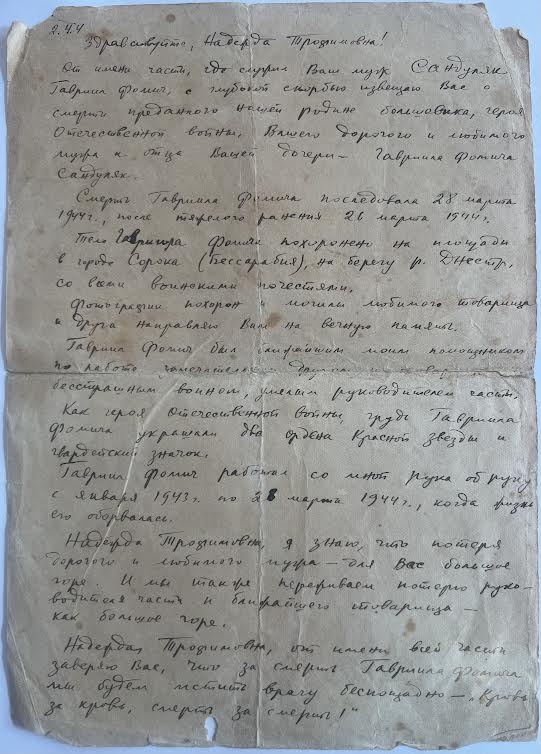 2.4.44
Здравствуйте, Надежда Трофимовна!
От имени части, где служил Ваш муж Сандуляк
Гавриил Фомич, с глубокой скорбью извещаю Вас о
смерти преданного нашей родине большевика, героя
Отечественной войны, Вашего дорогого и любимого
мужа и отца Вашей дочери – Гавриила Фомича
Сандуляк.
Смерть Гавриила Фомича последовала 28 марта
1944 г., после тяжелого ранения 26 марта 1944 г.
Тело Гавриила Фомича похоронено на площади
в городе Сорока (Бессарабия), на берегу р. Днестр,
со всеми воинскими почестями.
Фотографии похорон и могилы любимого товарища
и друга направляю Вам на вечную память.
Гавриил Фомич был ближайшим моим помощником
по работе, замечательным другом и
бесстрашным воином, умелым руководителем части.
Как героя Отечественной войны, грудь Гавриила
Фомича украшали два ордена Красной звезды и
гвардейский значок.
Гавриил Фомич работал со мной рука об руку
с января 1943 г. по 28 марта 1944 г., когда жизнь
его оборвалась.
Надежда Трофимовна, я знаю, что потеря
дорогого и любимого мужа – для Вас большое
горе. И мы также переживаем потерю руко-
водителя части и ближайшего товарища –
как большое горе.
Надежда Трофимовна, от имени всей части
заверяю Вас, что за смерть Гавриила Фомича
мы будем мстить врагу беспощадно – „Кровь
за кровь, смерть за смерть!"